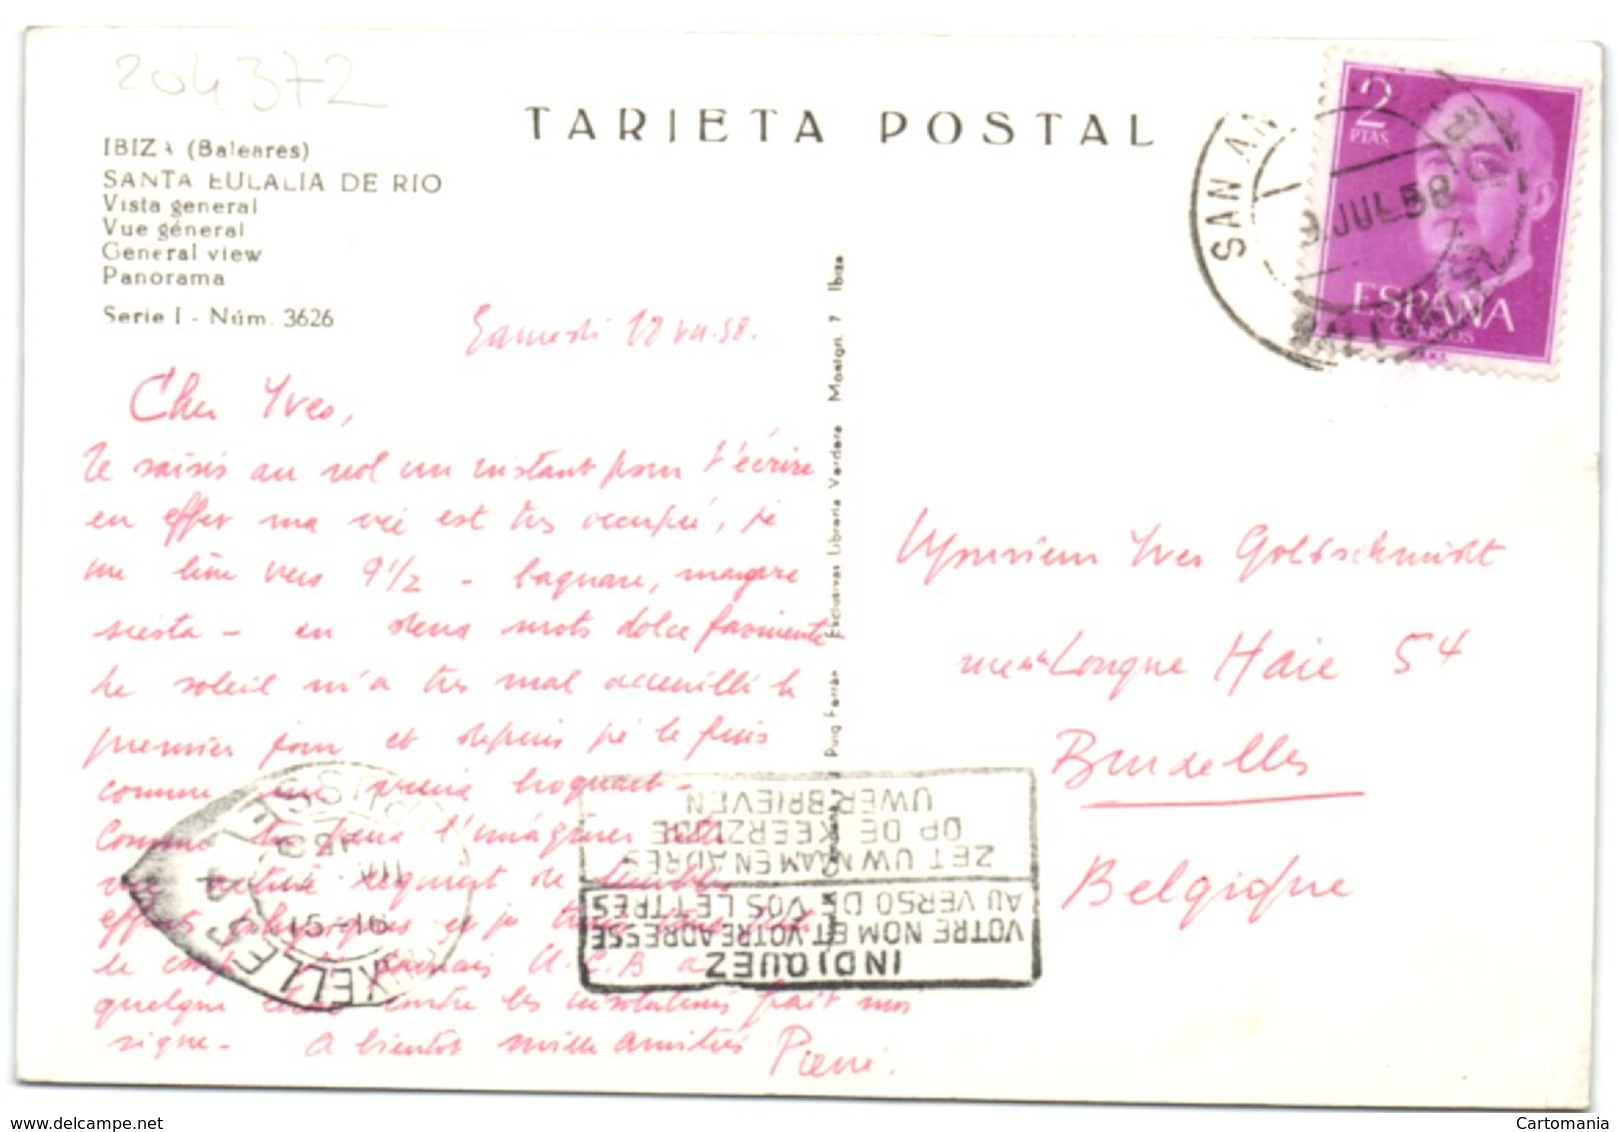 204372
TARJETA POSTAL
IBIZA (Baleares)
SANTA EULALIA DE RIO
Vista general
Vue général
General view
Panorama
Serie I - Núm. 3626
2
PTAS
ESPAÑA
CORREOS
SAN AN
JUL 58
BALEARES
Samedi VII.58.
Cher Yves,
Je saisis au vol un instant pour t'écrire
en effet ma vie est très occupée, je
me lève vers 9 1/2 - baignare, mangare
siesta - en deux mots dolce farniente
Le soleil m'a très mal accueilli le
premier jour et depuis je le fuis
comme un vrai
Comme tu peux l'imaginer cette
vie active requiert de terribles
efforts physiques et je
le jamais U.C.B a
quelque chose contre les insolations fait moi
signe - A bientôt mille amitiés Pierre.
Puig Ferrán Exclusivas Librería Verdera Montgri. 7 Ibiza
Monsieur Yves Goldschmidt
rue de la Longue Haie 54
Bruxelles
Belgique
BRUXELLES
BRUSSEL
15-16
INDIQUEZ
VOTRE NOM ET VOTRE ADRESSE
AU VERSO DE VOS LETTRES
ZET UW NAAM EN ADRES
OP DE KEERZIJDE
UWER BRIEVEN
www.delcampe.net
Cartomania